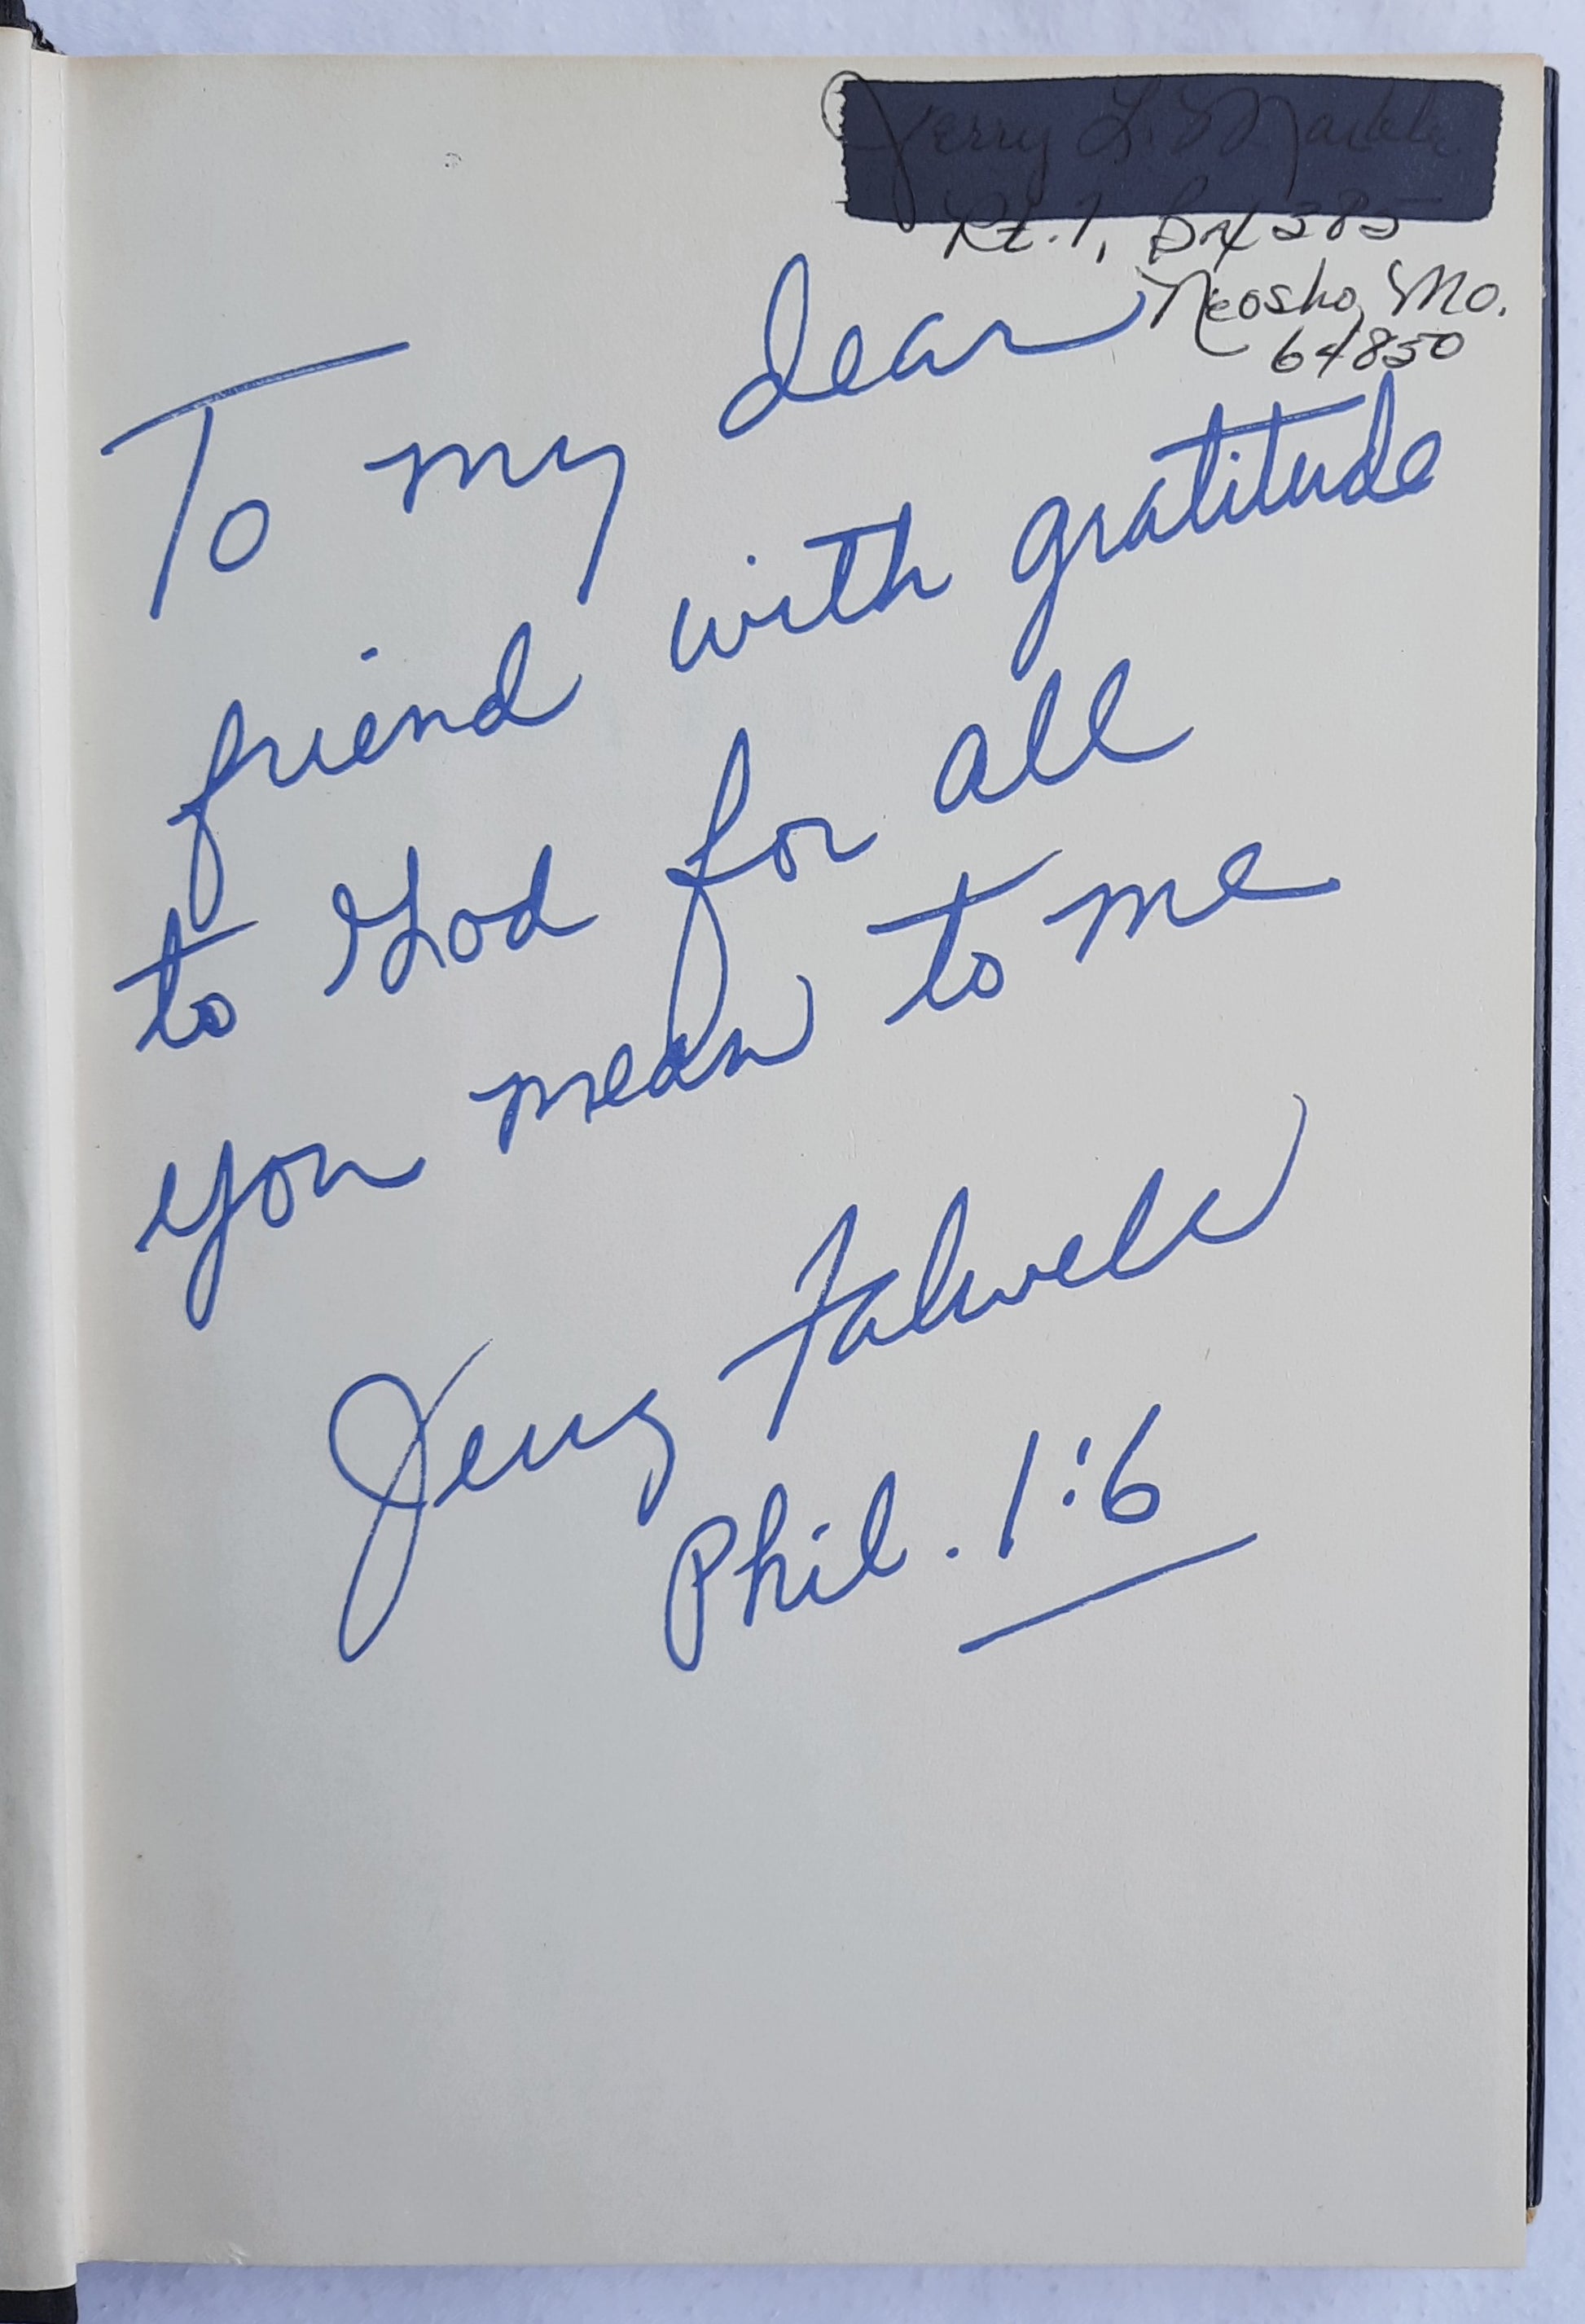 Rt. 1, Bx 385
Neosho, Mo.
64850
To my dear
friend with gratitude
to God for all
you mean to me
Jerry Falwell
Phil. 1:6